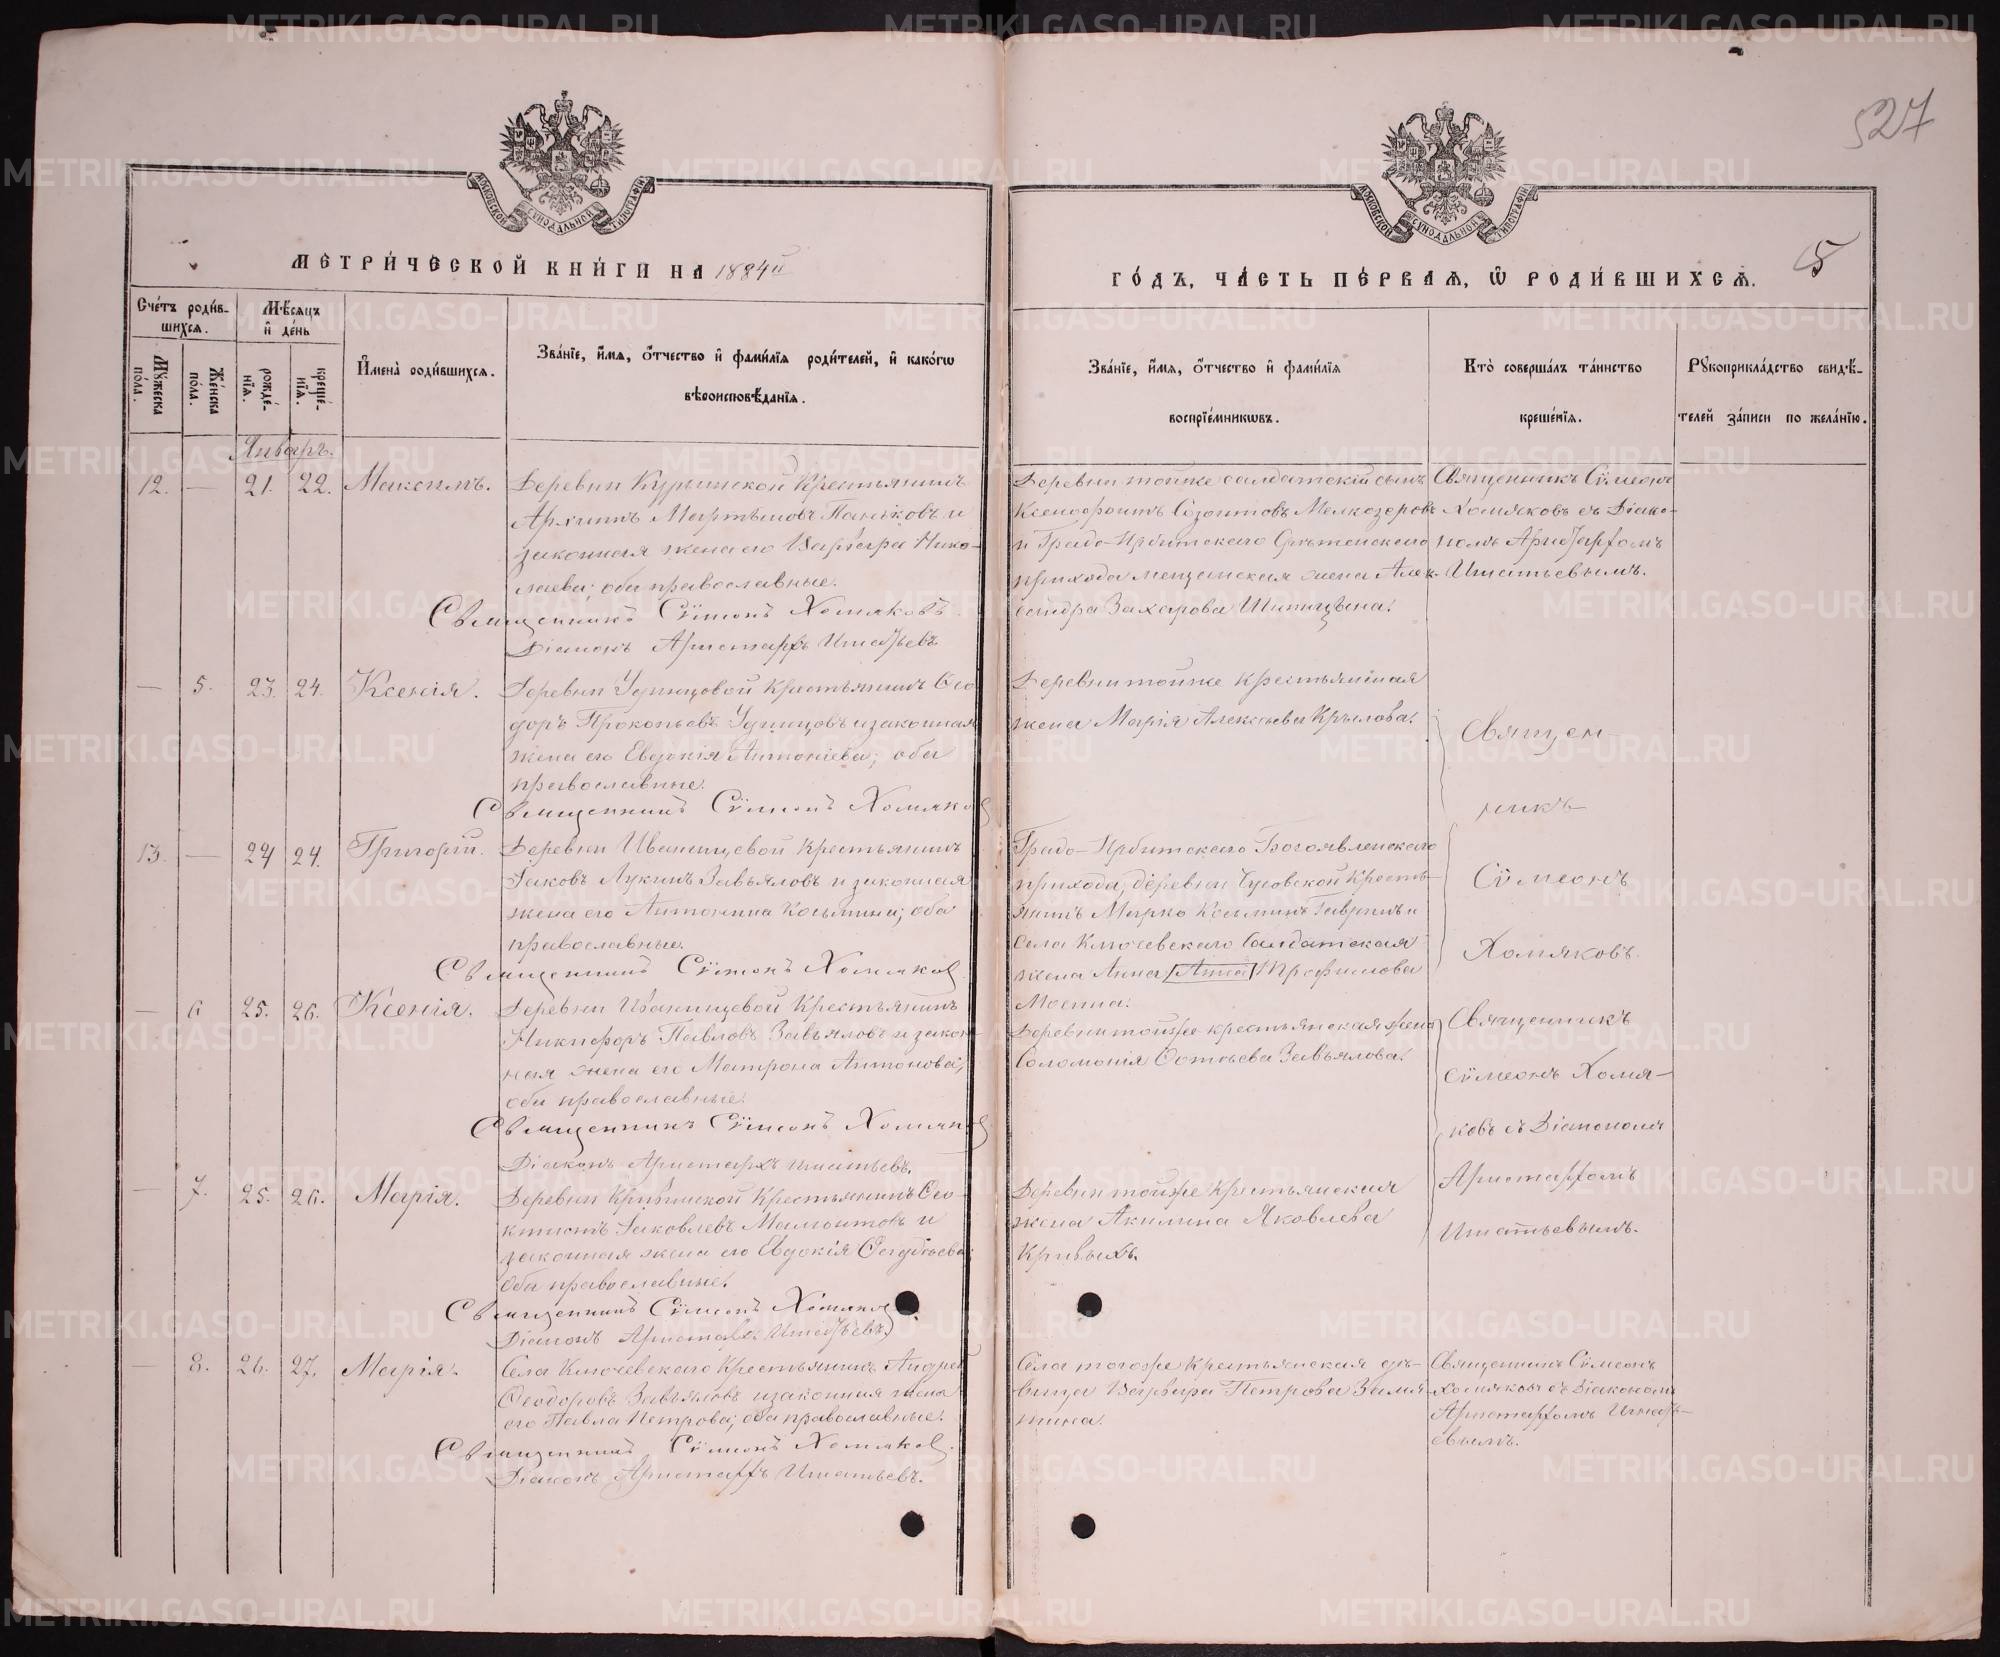 527
МОСКОВСКОЙ СѴНОДАЛЬНОЙ ТИПОГРАФІИ
МОСКОВСКОЙ СѴНОДАЛЬНОЙ ТИПОГРАФІИ
МЕТРИ́ЧЕСКОЙ КНИ́ГИ НА 1884й
ГО́ДЪ, ЧА́СТЬ ПЕ́РВАѦ, Ѽ РОДИ́ВШИХСѦ. 5
Сче́тъ роди́вшихсѧ.
Мѣ́сѧцъ и҆ де́нь
Мꙋ́жеска по́ла.
Же́нска по́ла.
рожде́нїѧ.
креще́нїѧ.
И҆мена̀ роди́вшихсѧ.
Зва́нїе, и҆́мѧ, ѻ҆́тчество и҆ фами́лїѧ роди́телей, и҆ како́гѡ
вѣроисповѣ́данїѧ.
Зва́нїе, и҆́мѧ, ѻ҆́тчество и҆ фами́лїѧ
воспрїе́мникѡвъ.
Кто̀ соверша́лъ та́инство
креще́нїѧ.
Рꙋкоприкла́дство свидѣ́-
телей за́писи по жела́нїю.
Январь.
12. — 21. 22. Максимъ.
Деревни Курьинской Крестьянинъ
Архипъ Мартемовъ Паньковъ и
законная жена его Варвара Нико-
лаева; оба православные.
Священникъ Сѵмеонъ Хомяковъ.
Діаконъ Аристархъ Игнатьевъ
Деревни тойже солдатскій сынъ
Ксенофонтъ Созонтовъ Мелкозеровъ
и Градо-Ирбитскаго Срѣтенскаго
прихода мещанская жена Алек-
сандра Захарова Шипицына.
Священникъ Сѵмеонъ
Хомяковъ съ Діако-
номъ Аристархомъ
Игнатьевымъ.
— 5. 23. 24. Ксенія.
Деревни Удинцовой Крестьянинъ Ѳео-
доръ Прокопьевъ Удинцовъ и законная
жена его Евдокія Антоніева; оба
православные.
Священникъ Сѵмеонъ Хомяковъ
Деревни тойже крестьянская
жена Марія Алексѣева Крылова.
Священ-
никъ
Сѵмеонъ
Хомяковъ.
13. — 24 24. Григорій.
Деревни Иванищевой Крестьянинъ
Іаковъ Лукинъ Завьяловъ и законная
жена его Антонина Косьмина; оба
православные.
Священникъ Сѵмеонъ Хомяковъ
Градо-Ирбитскаго Богоявленскаго
прихода, деревни Чусовской Кресть-
янинъ Марко Косьминъ Гавринъ и
села Ключевскаго Солдатская
жена Анна Анна Трофимова
Мосина.
— 6 25. 26. Ксенія.
Деревни Иванищевой Крестьянинъ
Никифоръ Павловъ Завьяловъ и закон-
ная жена его Матрона Антонова;
оба православные.
Священникъ Сѵмеонъ Хомяковъ
Діаконъ Аристархъ Игнатьевъ.
Деревни тойже крестьянская жена
Соломонія Фотіева Завьялова.
Священникъ
Сѵмеонъ Хомя-
ковъ съ Діакономъ
Аристархомъ
Игнатьевымъ.
— 7. 25. 26. Марія.
Деревни Кривинской Крестьянинъ Ѳео-
ктистъ Іаковлевъ Мамонтовъ и
законная жена его Евдокія
оба православные.
Священникъ Сѵмеонъ Хомяковъ
Діаконъ Аристархъ Игнатьевъ
Деревни тойже Крестьянская
жена Акилина Яковлева
Кривыхъ.
— 8. 26. 27. Марія.
Села Ключевскаго Крестьянинъ Андрей
Ѳеодоровъ Завьяловъ и законная жена
его Павла Петрова; оба православные.
Священникъ Сѵмеонъ Хомяковъ.
Діаконъ Аристархъ Игнатьевъ.
Села тогоже Крестьянская дѣ-
вица Варвара Петрова Замя-
тина.
Священникъ Сѵмеонъ
Хомяковъ съ Діакономъ
Аристархомъ Игнать-
евымъ.
METRIKI.GASO-URAL.RU